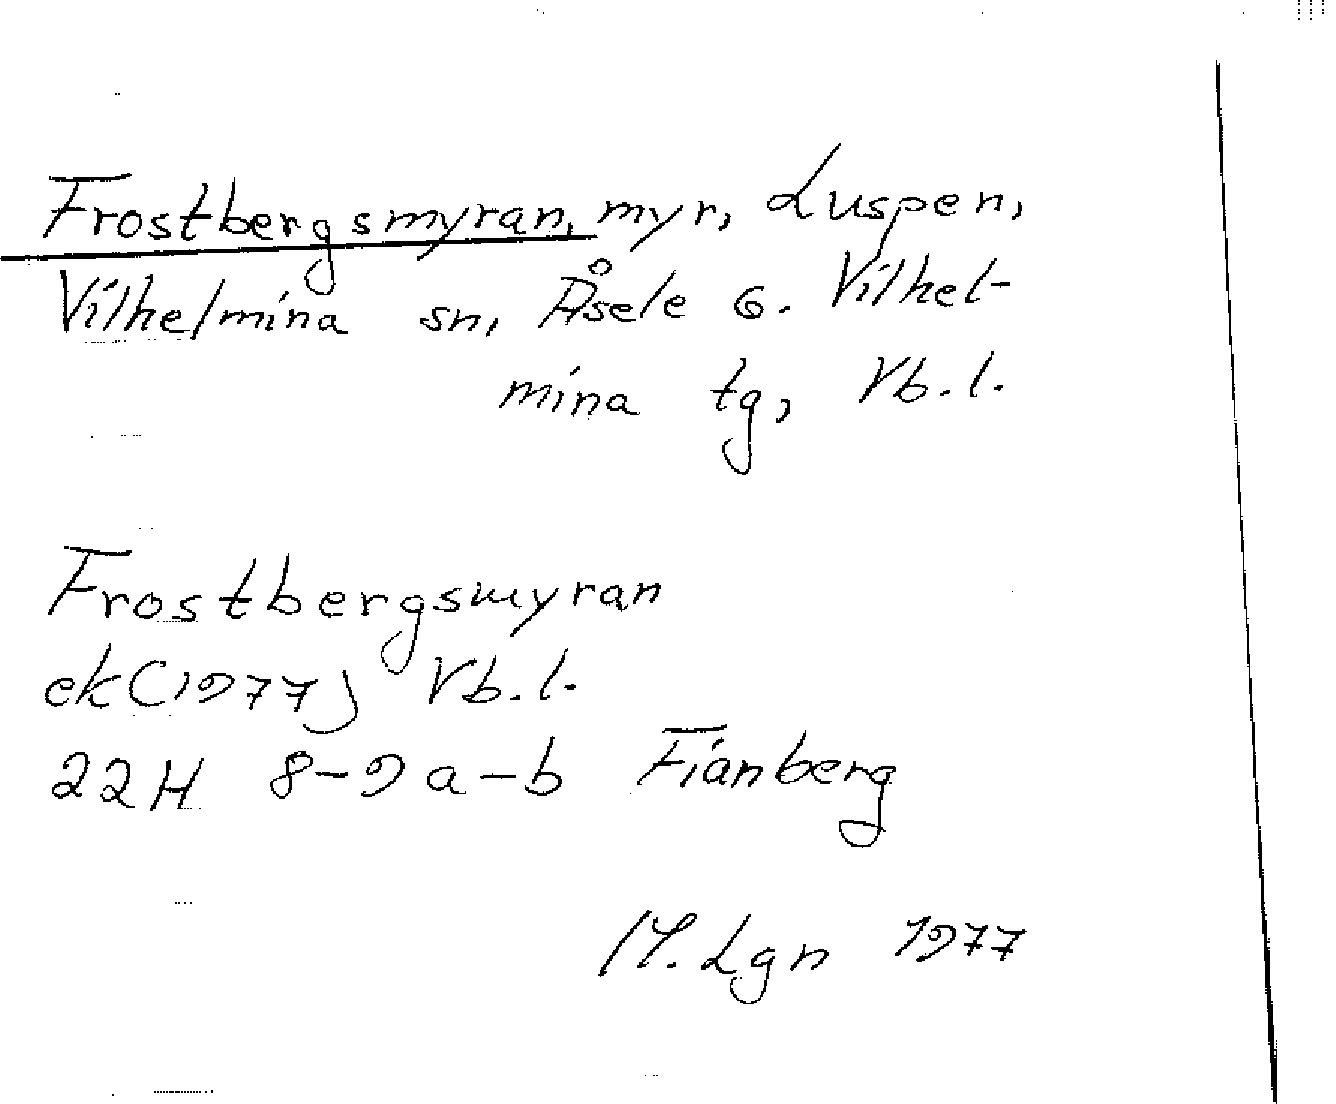 Frostbergsmyran, myr, Luspen,
Vilhelmina sn, Åsele G. Vilhel-
mina tg, Vb. l.
Frostbergsmyran
ek (1977) Vb. l.
22H 8-9 a-b Fianberg
M. Lgn 1977